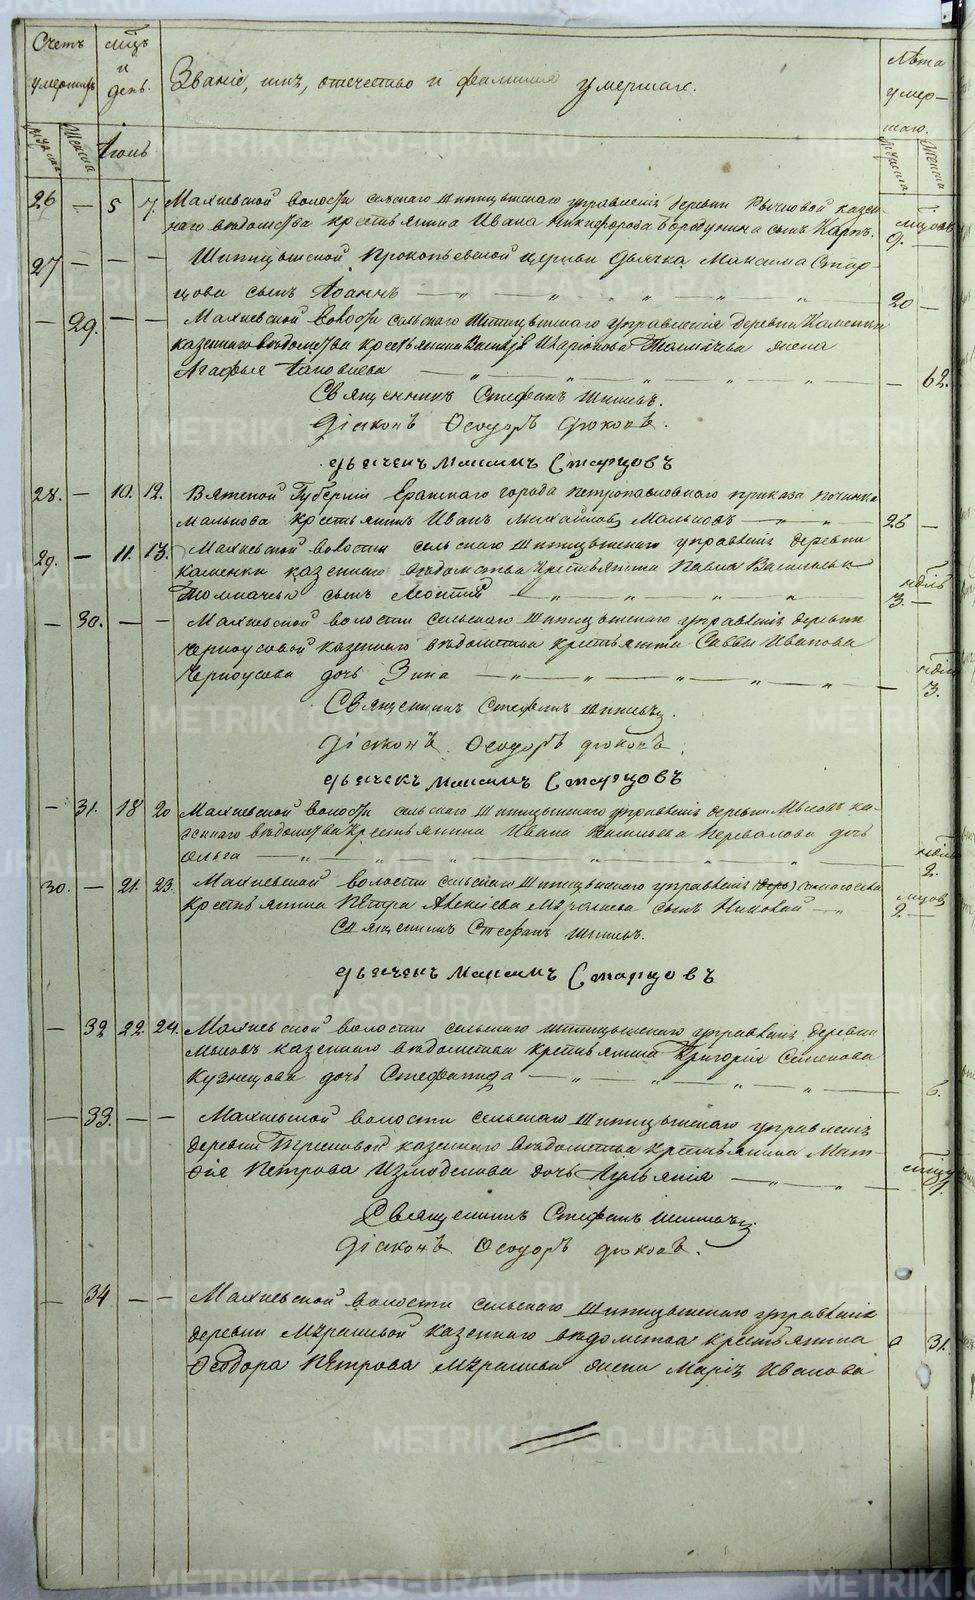 Счетъ умершихъ
Мужска Женска
Мѣсяцъ и день.
Іюль
Званіе, имя, отечество и фамилія умершаго.
Лѣта умершаго.
Мужска Женска
26 — 5 7. Махневской волости сельскаго Шипицынскаго управленія деревни казен-
наго вѣдомства крестьянина Ивана Никифорова Бородунина сынъ Карпъ. мѣсяц. 9.
27 — — — Шипицынской Прокопьевской церкви дьячка Максима Стар-
цова сынъ Іоаннъ — „ — „ — „ — „ 20 —
— 29. — — Махневской волости сельскаго Шипицынскаго управленія деревни Каменки
казеннаго вѣдомства крестьянина Василья Иларіонова жена
Агафья — „ — „ — „ — „ — 62.
Священникъ Стефанъ Шишевъ.
Діаконъ Ѳеодоръ Дюковъ.
дьячекъ Максимъ Старцовъ
28. — 10. 12. Вятской Губерніи Еранскаго города Петропавловскаго приказа починка
Малькова крестьянинъ Иванъ Михайловъ Мальковъ — „ — „ — 26 —
29. — 11. 13. Махневской волости сельскаго Шипицынскаго управленія деревни
Каменки казеннаго вѣдомства крестьянина Павла Васильева
сынъ Леонтій — „ — „ — „ — „ недѣль 3. —
— 30. — — Махневской волости сельскаго Шипицынскаго управленія деревни
Черноусовой казеннаго вѣдомства крестьянина Саввы Иванова
Черноусова дочь Зина — „ — „ — „ — „ — „ — недѣль 3.
Священникъ Стефанъ Шишевъ.
Діаконъ Ѳеодоръ Дюковъ.
дьячекъ Максимъ Старцовъ
— 31. 18 20 Махневской волости сельскаго Шипицынскаго управленія деревни Мысовъ ка-
зеннаго вѣдомства крестьянина Ивана Васильева Перевалова дочь
Ольга — „ — „ — „ — „ — „ недѣль 2.
30. — 21. 23. Махневской волости сельскаго Шипицынскаго управленія (дерь)
крестьянина Петра Алексіева сынъ Николай — „ мѣсяцов. 2. —
Священникъ Стефанъ Шишевъ.
дьячекъ Максимъ Старцовъ
— 32 22. 24. Махневской волости сельскаго Шипицынскаго управленія деревни
Мысовъ казеннаго вѣдомства крестьянина Григорія Семенова
Кузнецова дочь Стефанида — „ — „ — „ — „ — 6.
— 33. — — Махневской волости сельскаго Шипицынскаго управленія
деревни казеннаго вѣдомства крестьянина Мат-
ѳія Петрова Измоденова дочь Іуліянія — „ — „ —
Священникъ Стефанъ Шишевъ.
Діаконъ Ѳеодоръ Дюковъ.
— 34 — — Махневской волости сельскаго Шипицынскаго управленія
деревни казеннаго вѣдомства крестьянина
Ѳеодора Петрова жена Марія Иванова 31.
METRIKI.GASO-URAL.RU